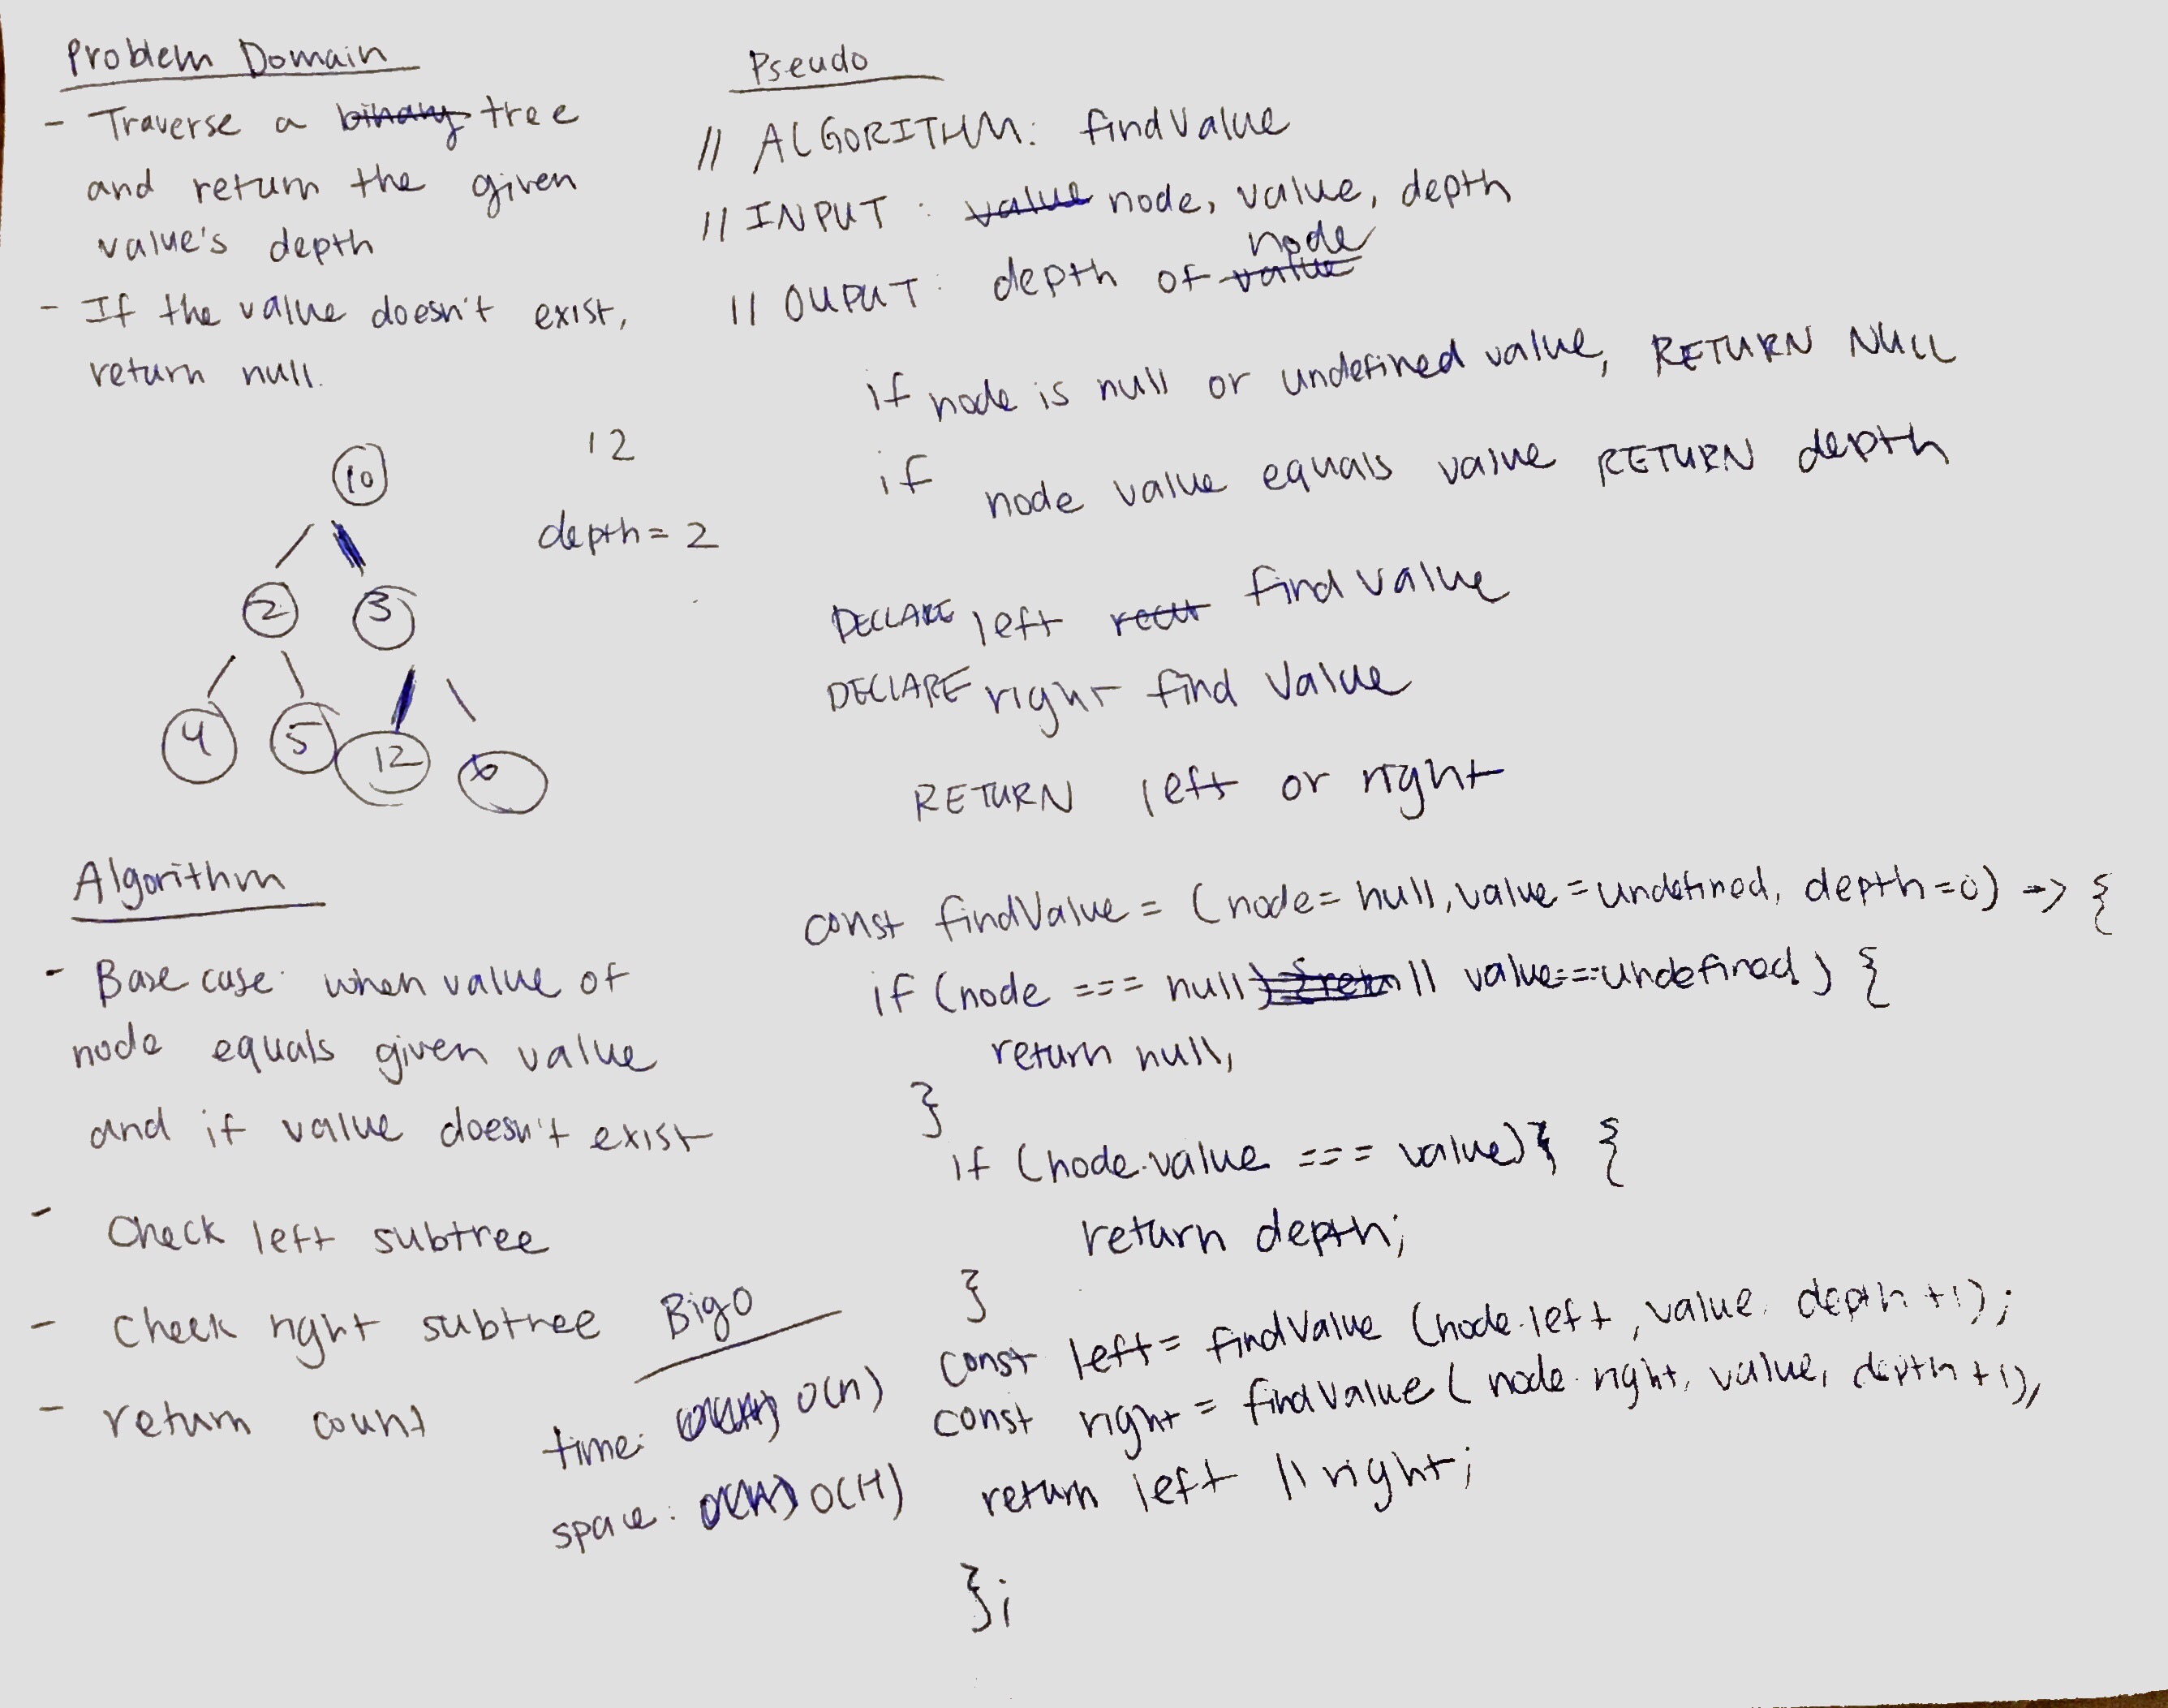 Problem Domain
- Traverse a binary tree
and return the given
value's depth
- If the value doesn't exist,
return null.
10
12
depth = 2
2 3
4 5 12 6
Algorithm
- Base case: when value of
node equals given value
and if value doesn't exist
- Check left subtree
- Check right subtree
- return count
BigO
time: O(n)
space: O(H)
Pseudo
// ALGORITHM: findValue
// INPUT: value node, value, depth
node
// OUPUT: depth of value
if node is null or undefined value, RETURN NULL
if node value equals value RETURN depth
DECLARE left find value
DECLARE right find Value
RETURN left or right
const findValue = (node = null, value = undefined, depth = 0) => {
if (node === null || value === undefined) {
return null;
}
if (node.value === value) {
return depth;
}
const left = findValue (node.left, value, depth +1);
const right = findValue (node.right, value, depth +1);
return left || right;
};